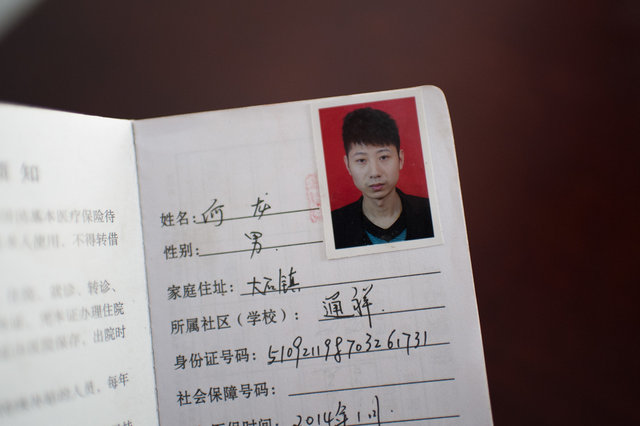 知
基本医疗保险待
人使用，不得转借
就诊、转诊、
本证办理住院
保存，出院时
的人员，每年
姓名：何龙
性别：男
家庭住址：大石镇
所属社区（学校）：通祥
身份证号码：510921198703261731
社会保障号码：
保时间：2014年1月